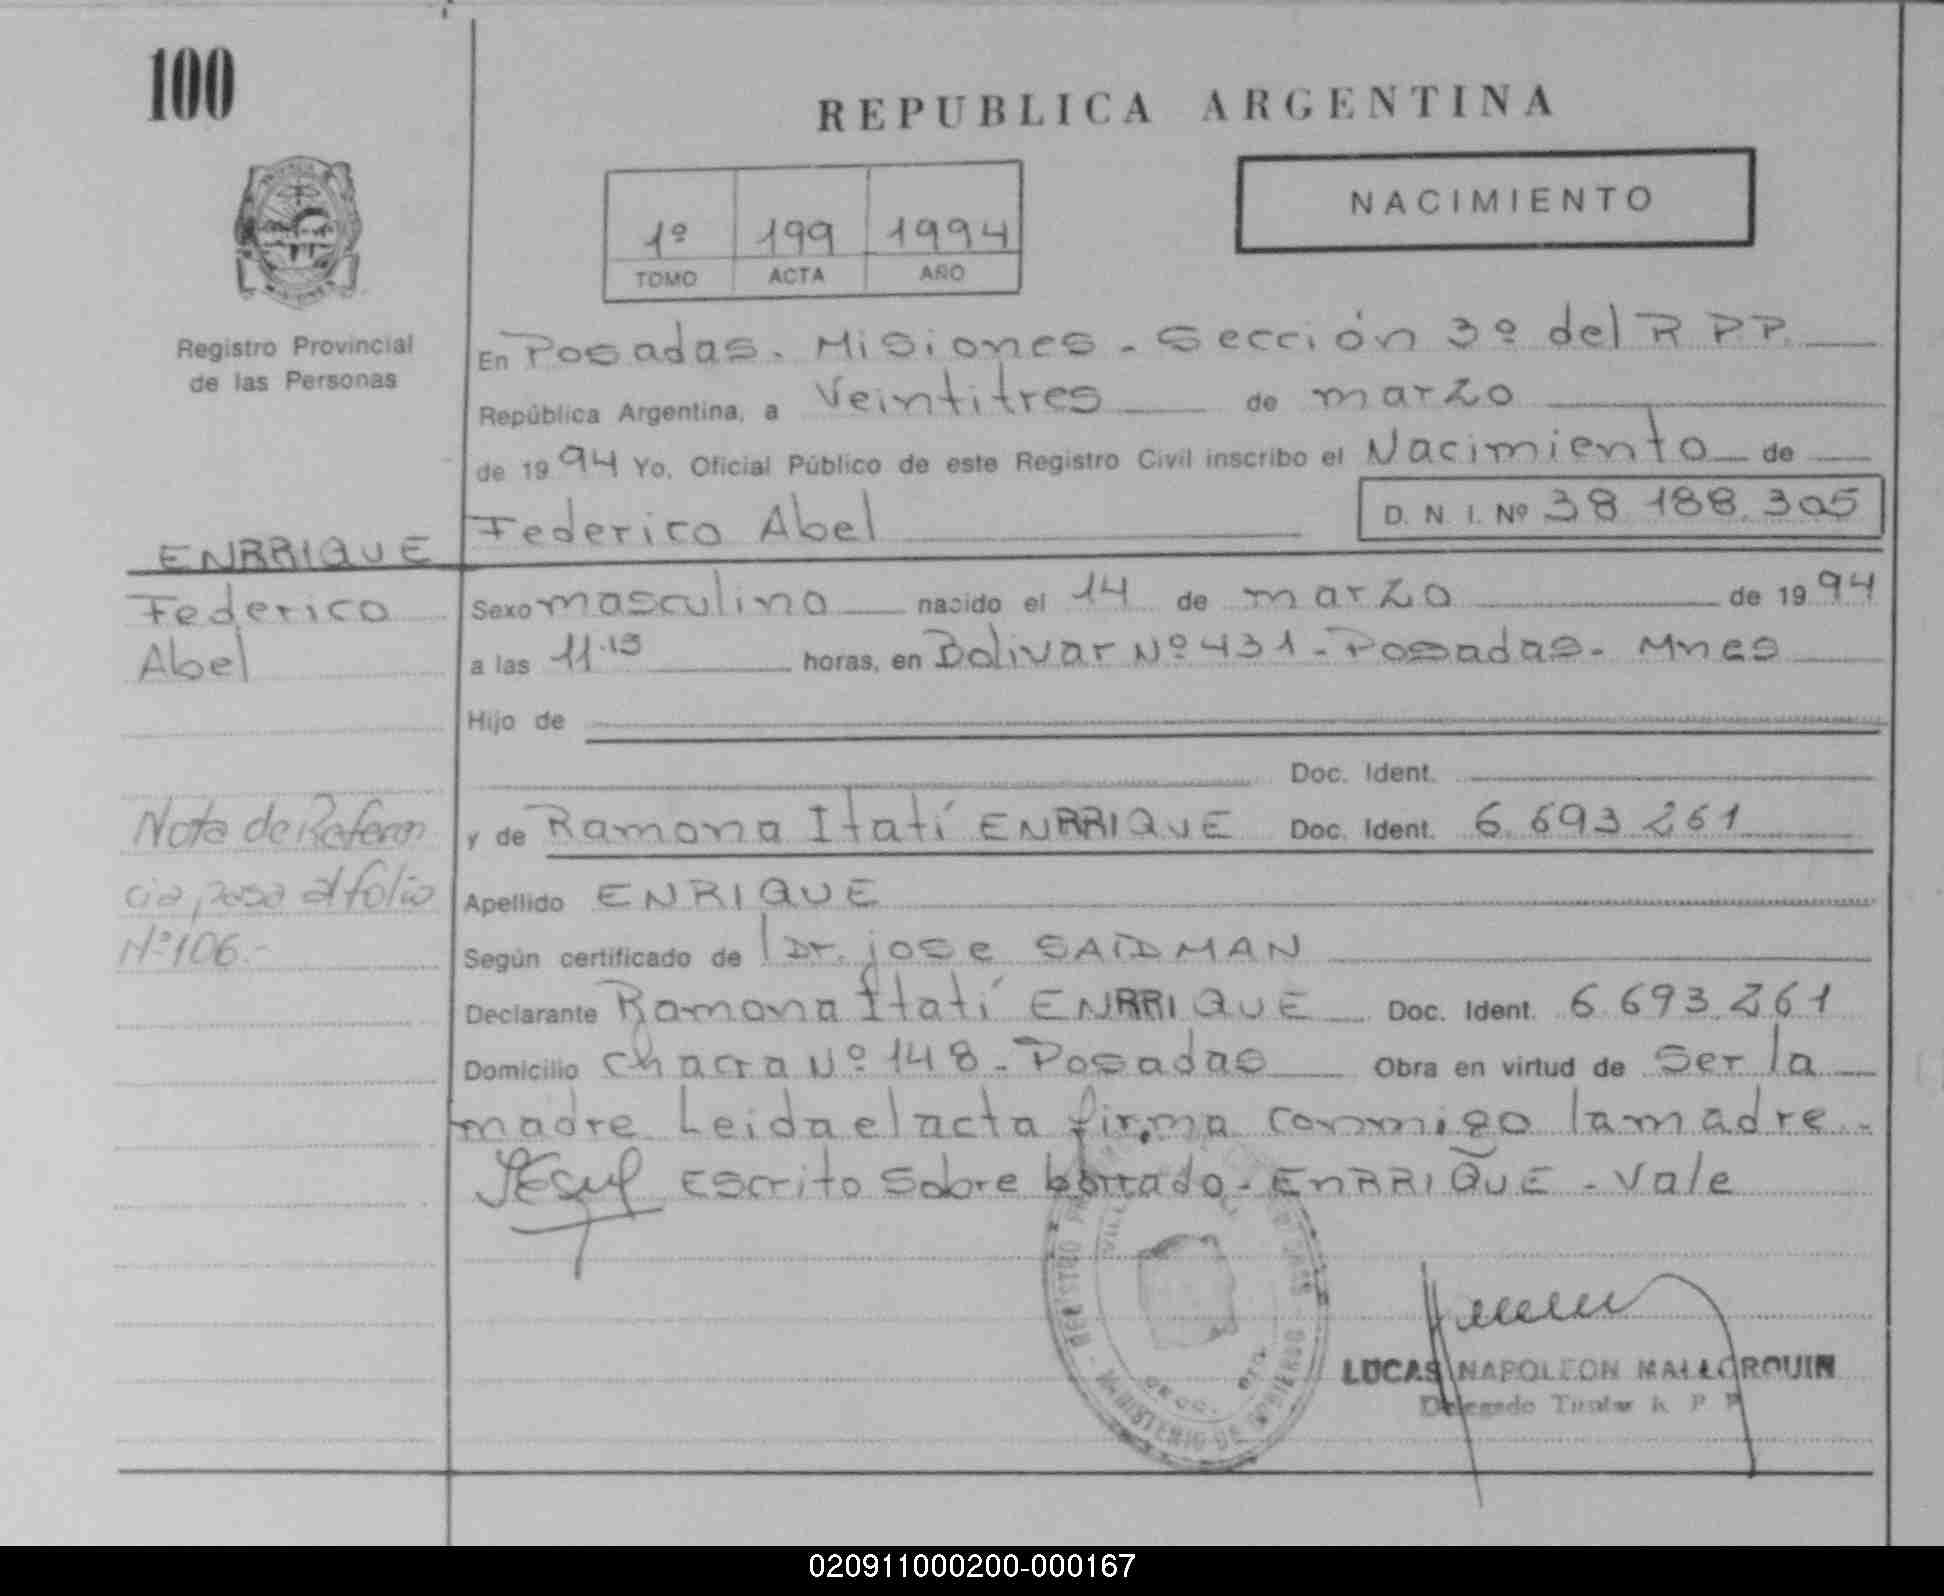 100
REPUBLICA ARGENTINA
NACIMIENTO
1º 199 1994
TOMO ACTA AÑO
Registro Provincial
de las Personas
En Posadas. Misiones - Sección 3º del R P.P.
República Argentina, a Veintitres de marzo
de 1994 Yo, Oficial Público de este Registro Civil inscribo el Nacimiento de
Federico Abel D. N. I. Nº 38 188.305
ENRRIQUE
Federico
Abel
Sexo masculino nacido el 14 de marzo de 1994
a las 11.15 horas, en Bolivar Nº 431 - Posadas - Mnes
Hijo de
Doc. Ident.
y de Ramona Itatí ENRRIQUE Doc. Ident. 6.693.261
Nota de Referen
cia pasa al folio
Nº 106.-
Apellido ENRIQUE
Según certificado de Dr. jose SAIDMAN
Declarante Ramona Itatí ENRRIQUE Doc. Ident. 6.693.261
Domicilio chacra Nº 148 - Posadas Obra en virtud de Ser la
madre Leida el acta firma conmigo la madre.-
Escrito Sobre borrado - ENRRIQUE - Vale
REGISTRO
MINISTERIO DE GOBIERNO
LUCAS NAPOLEON MALLORQUIN
Delegado Titular R P P
020911000200-000167